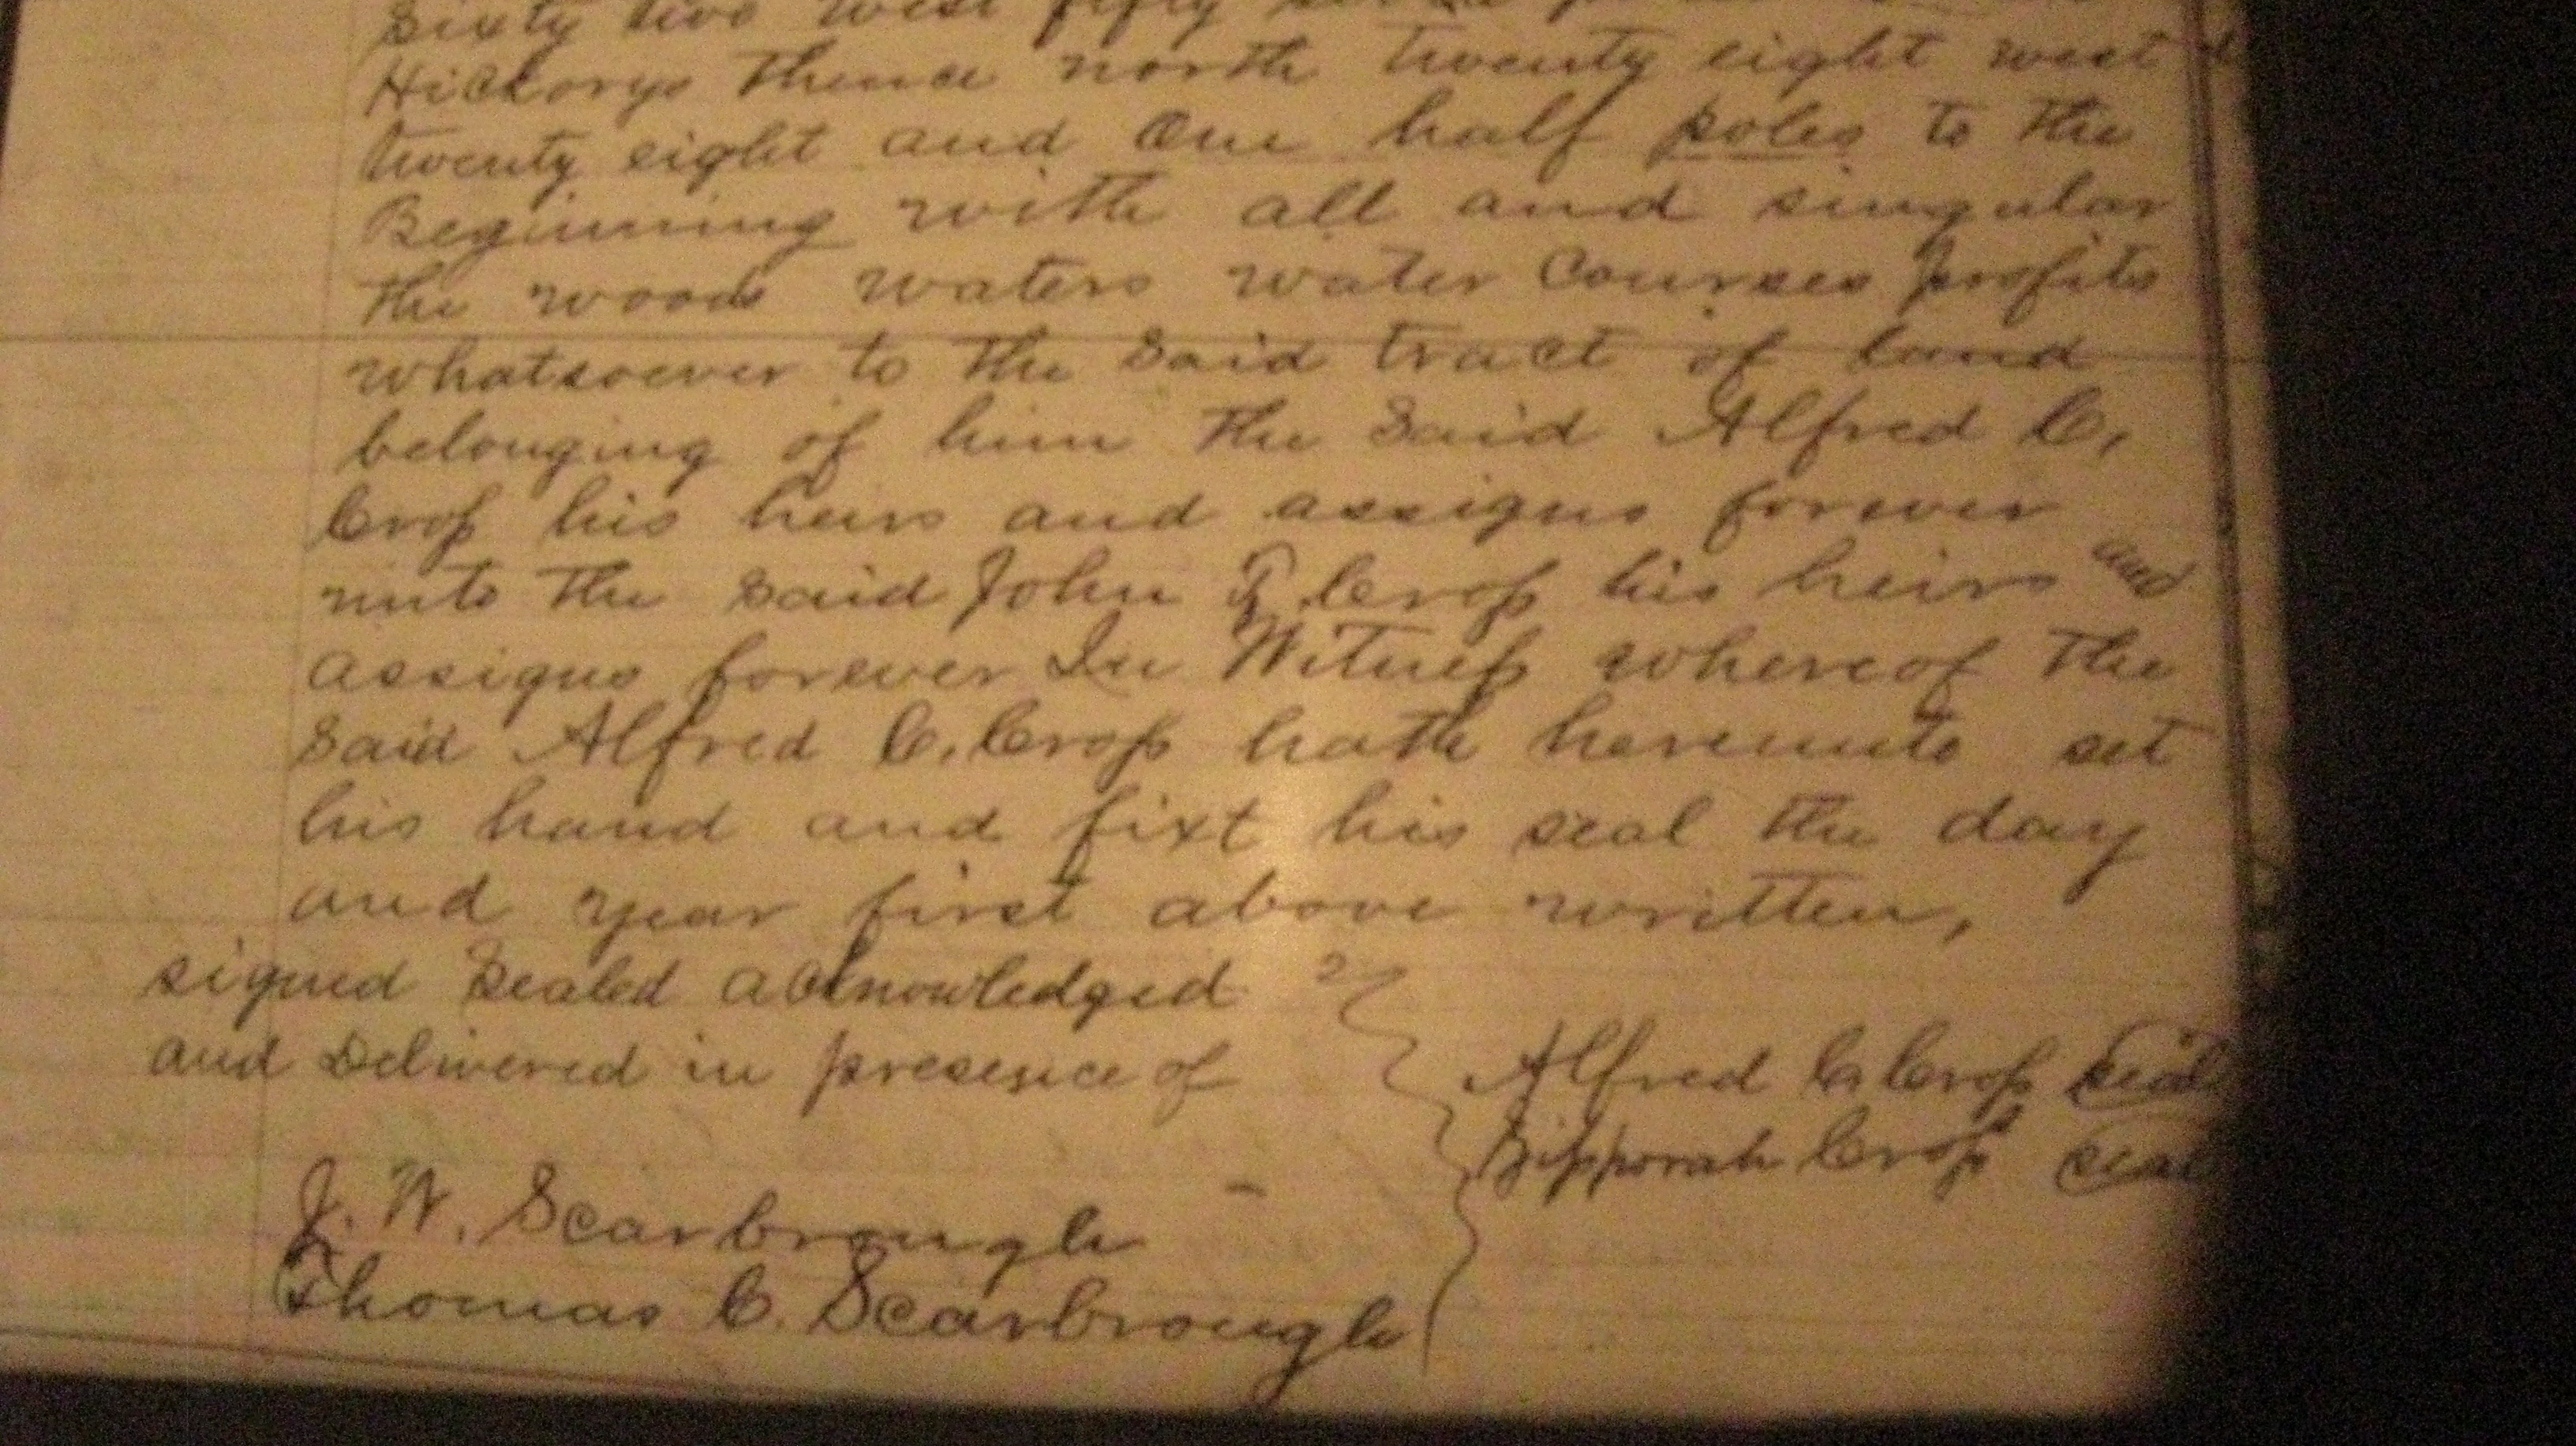 Sixty two west fifty
Hickorys thence north twenty eight west
twenty eight and One half poles to the
Beginning with all and singular
the woods waters water Courses profits
whatsoever to the Said tract of land
belonging of him the Said Alfred C,
Croſs his heirs and assigns forever
unto the said John F Croſs his heirs and
assigns forever In Witneſs whereof the
Said Alfred C. Croſs hath hereunto set
his hand and fixt his seal the day
and year first above written,
signed Sealed acknowledged
and Delivered in presence of
Alfred C Croſs Seal
Zipporah Croſs Seal
J. W. Scarbrough
Thomas C. Scarbrough